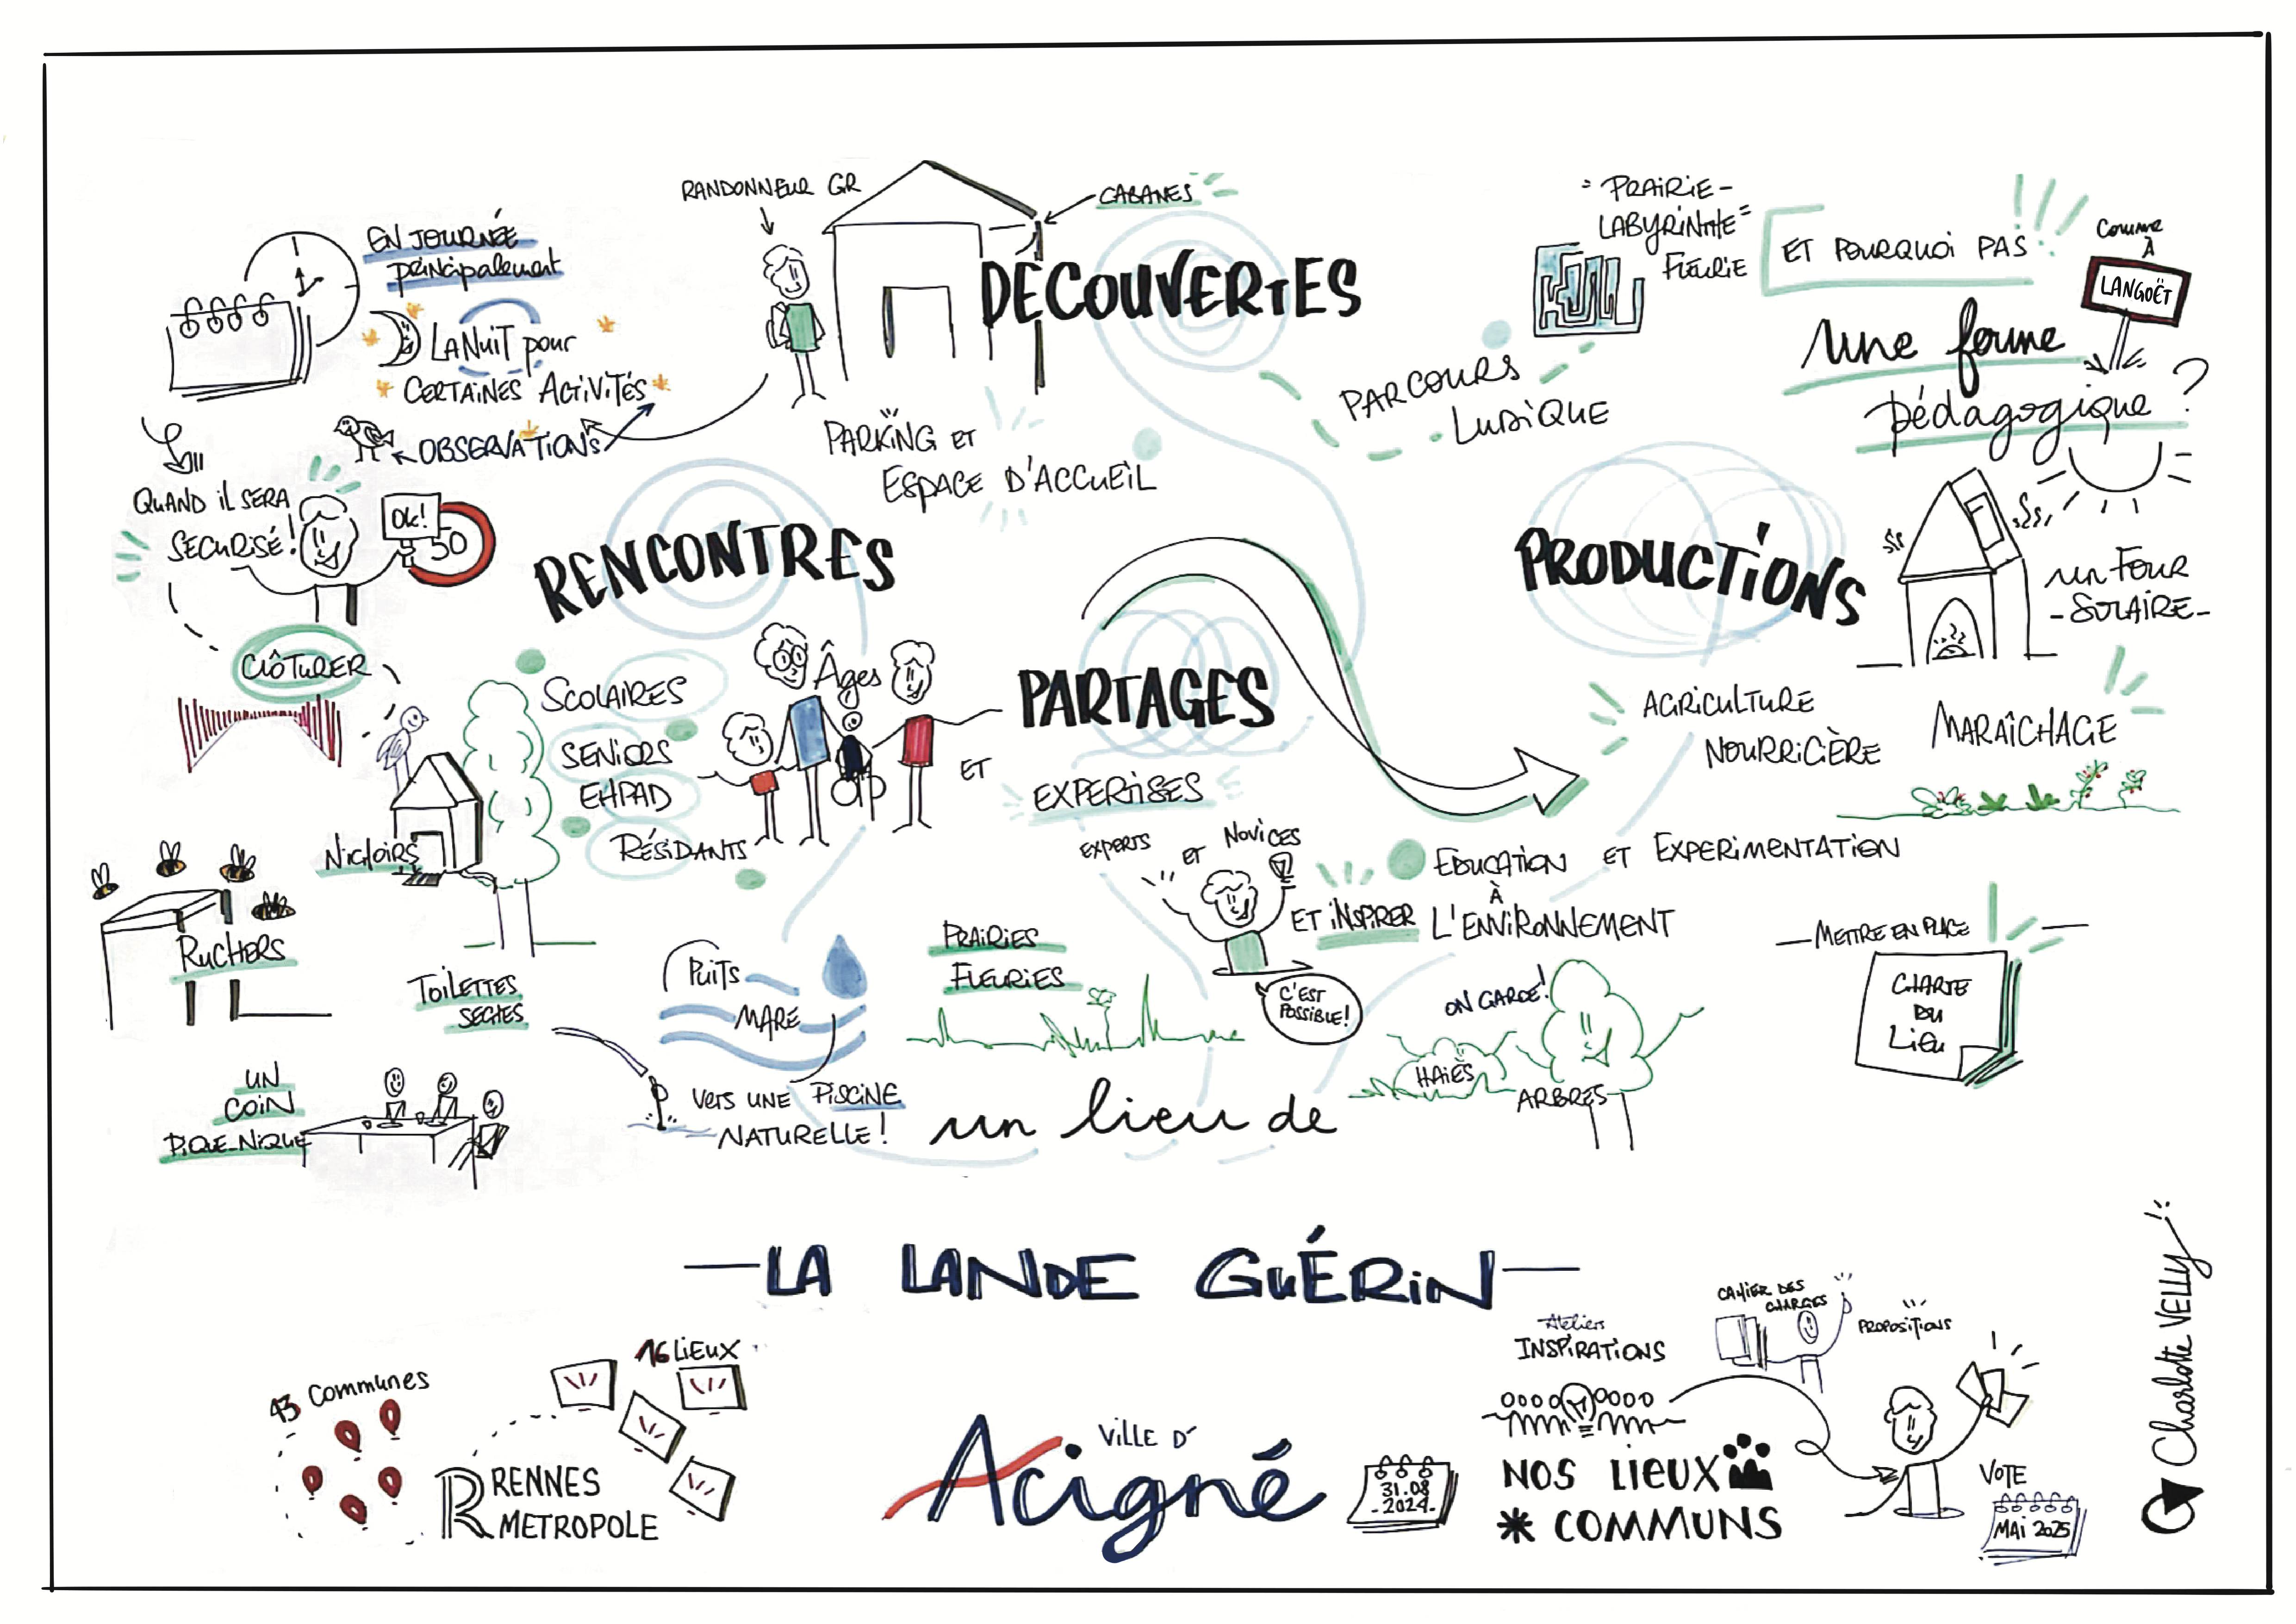 RANDONNEUR GR
CABANES
DÉCOUVERTES
PARKING ET
ESPACE D'ACCUEIL
EN JOURNÉE
principalement
LA NUIT pour
CERTAINES ACTIVITÉS
OBSERVATIONS
QUAND iL SERA
SÉCURISÉ!
OK!
50
CLÔTURER
"PRAIRIE-
LABYRINTHE"
FLEURIE
PARCOURS
LUDIQUE
ET POURQUOI PAS
COMME
À
LANGOËT
une ferme
pédagogique ?
UN FOUR
-SOLAIRE-
RENCONTRES
Âges
SCOLAIRES
SENiORS
EHPAD
RÉSIDANTS
ET
PARTAGES
EXPERTiSES
EXPERTS ET NOViCES
ET INSPIRER
C'EST
POSSIBLE!
PRODUCTiONS
AGRICULTURE
NOURRICIÈRE
MARAÎCHAGE
EDUCATION ET EXPERIMENTATION
À
L'ENVIRONNEMENT
METTRE EN PLACE
CHARTE
DU
LiEU
NICHOIRS
RUCHERS
TOILETTES
SECHES
UN
COIN
PIQUE-NIQUE
PUITS
MARE
VERS UNE PISCINE
NATURELLE!
PRAIRIES
FLEURIES
ON GARDE!
HAIES
ARBRES
un lieu de
LA LANDE GUÉRIN
43 COMMUNES
16 LIEUX
RENNES
METROPOLE
VILLE D'
Acigné
31.08
-2024-
Ateliers
INSPIRATIONS
NOS LIEUX
* COMMUNS
CAHIER DES
CHARGES
PROPOSITIONS
VOTE
MAI 2025
Charlotte VELLY